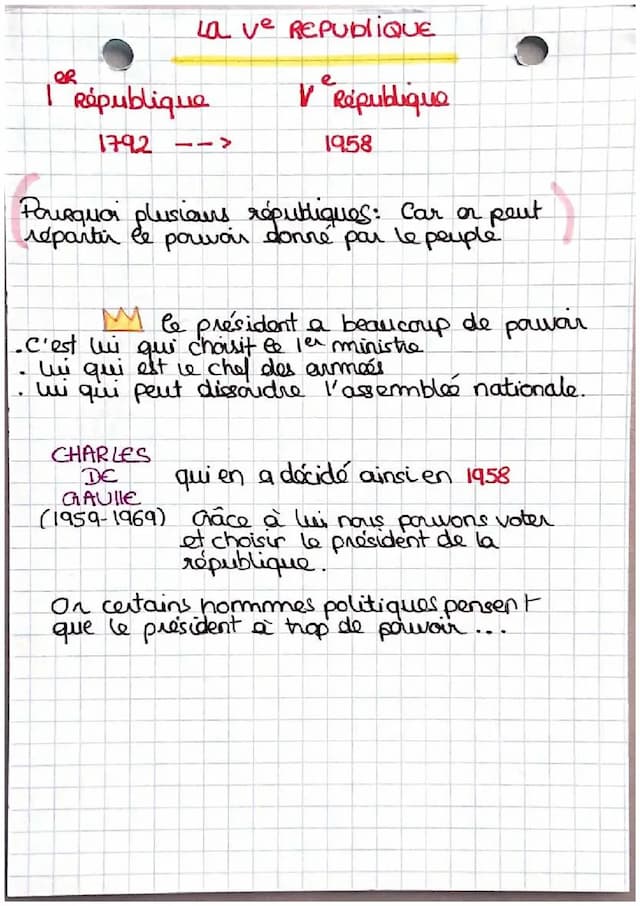 LA Ve REPUBLIQUE
1ER République Ve République
1792 --> 1958
(Pourquoi plusieurs républiques: Car on peut
répartir le pouvoir donné par le peuple)
le président a beaucoup de pouvoir
.C'est lui qui choisit le 1er ministre
. lui qui est le chef des armées
. lui qui peut dissoudre l'assemblée nationale.
CHARLES
DE
GAULLE
(1959-1969)
qui en a décidé ainsi en 1958
Grâce à lui nous pouvons voter
et choisir le président de la
république.
Or certains hommmes politiques pensent
que le président à trop de pouvoir...